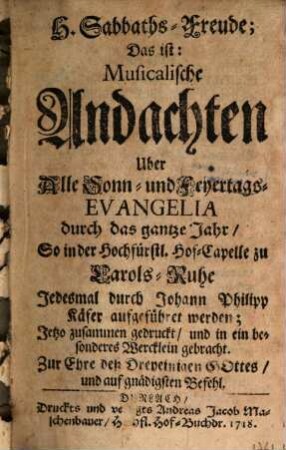 H. Sabbaths-Freude;
Das ist:
Musicalische
Andachten
Uber
Alle Sonn- und Feyertags-
EVANGELIA
durch das gantze Jahr/
So in der Hochfürstl. Hof-Capelle zu
Carols-Ruhe
Jedesmal durch Johann Philipp
Käfer aufgeführet werden;
Jetzo zusammen gedruckt/ und in ein be-
sonderes Wercklein gebracht.
Zur Ehre deß Dreyeinigen GOttes/
und auf gnädigsten Befehl.
Druckts und Andreas Jacob Ma-
schenbauer/ Hof-Buchdr. 1718.